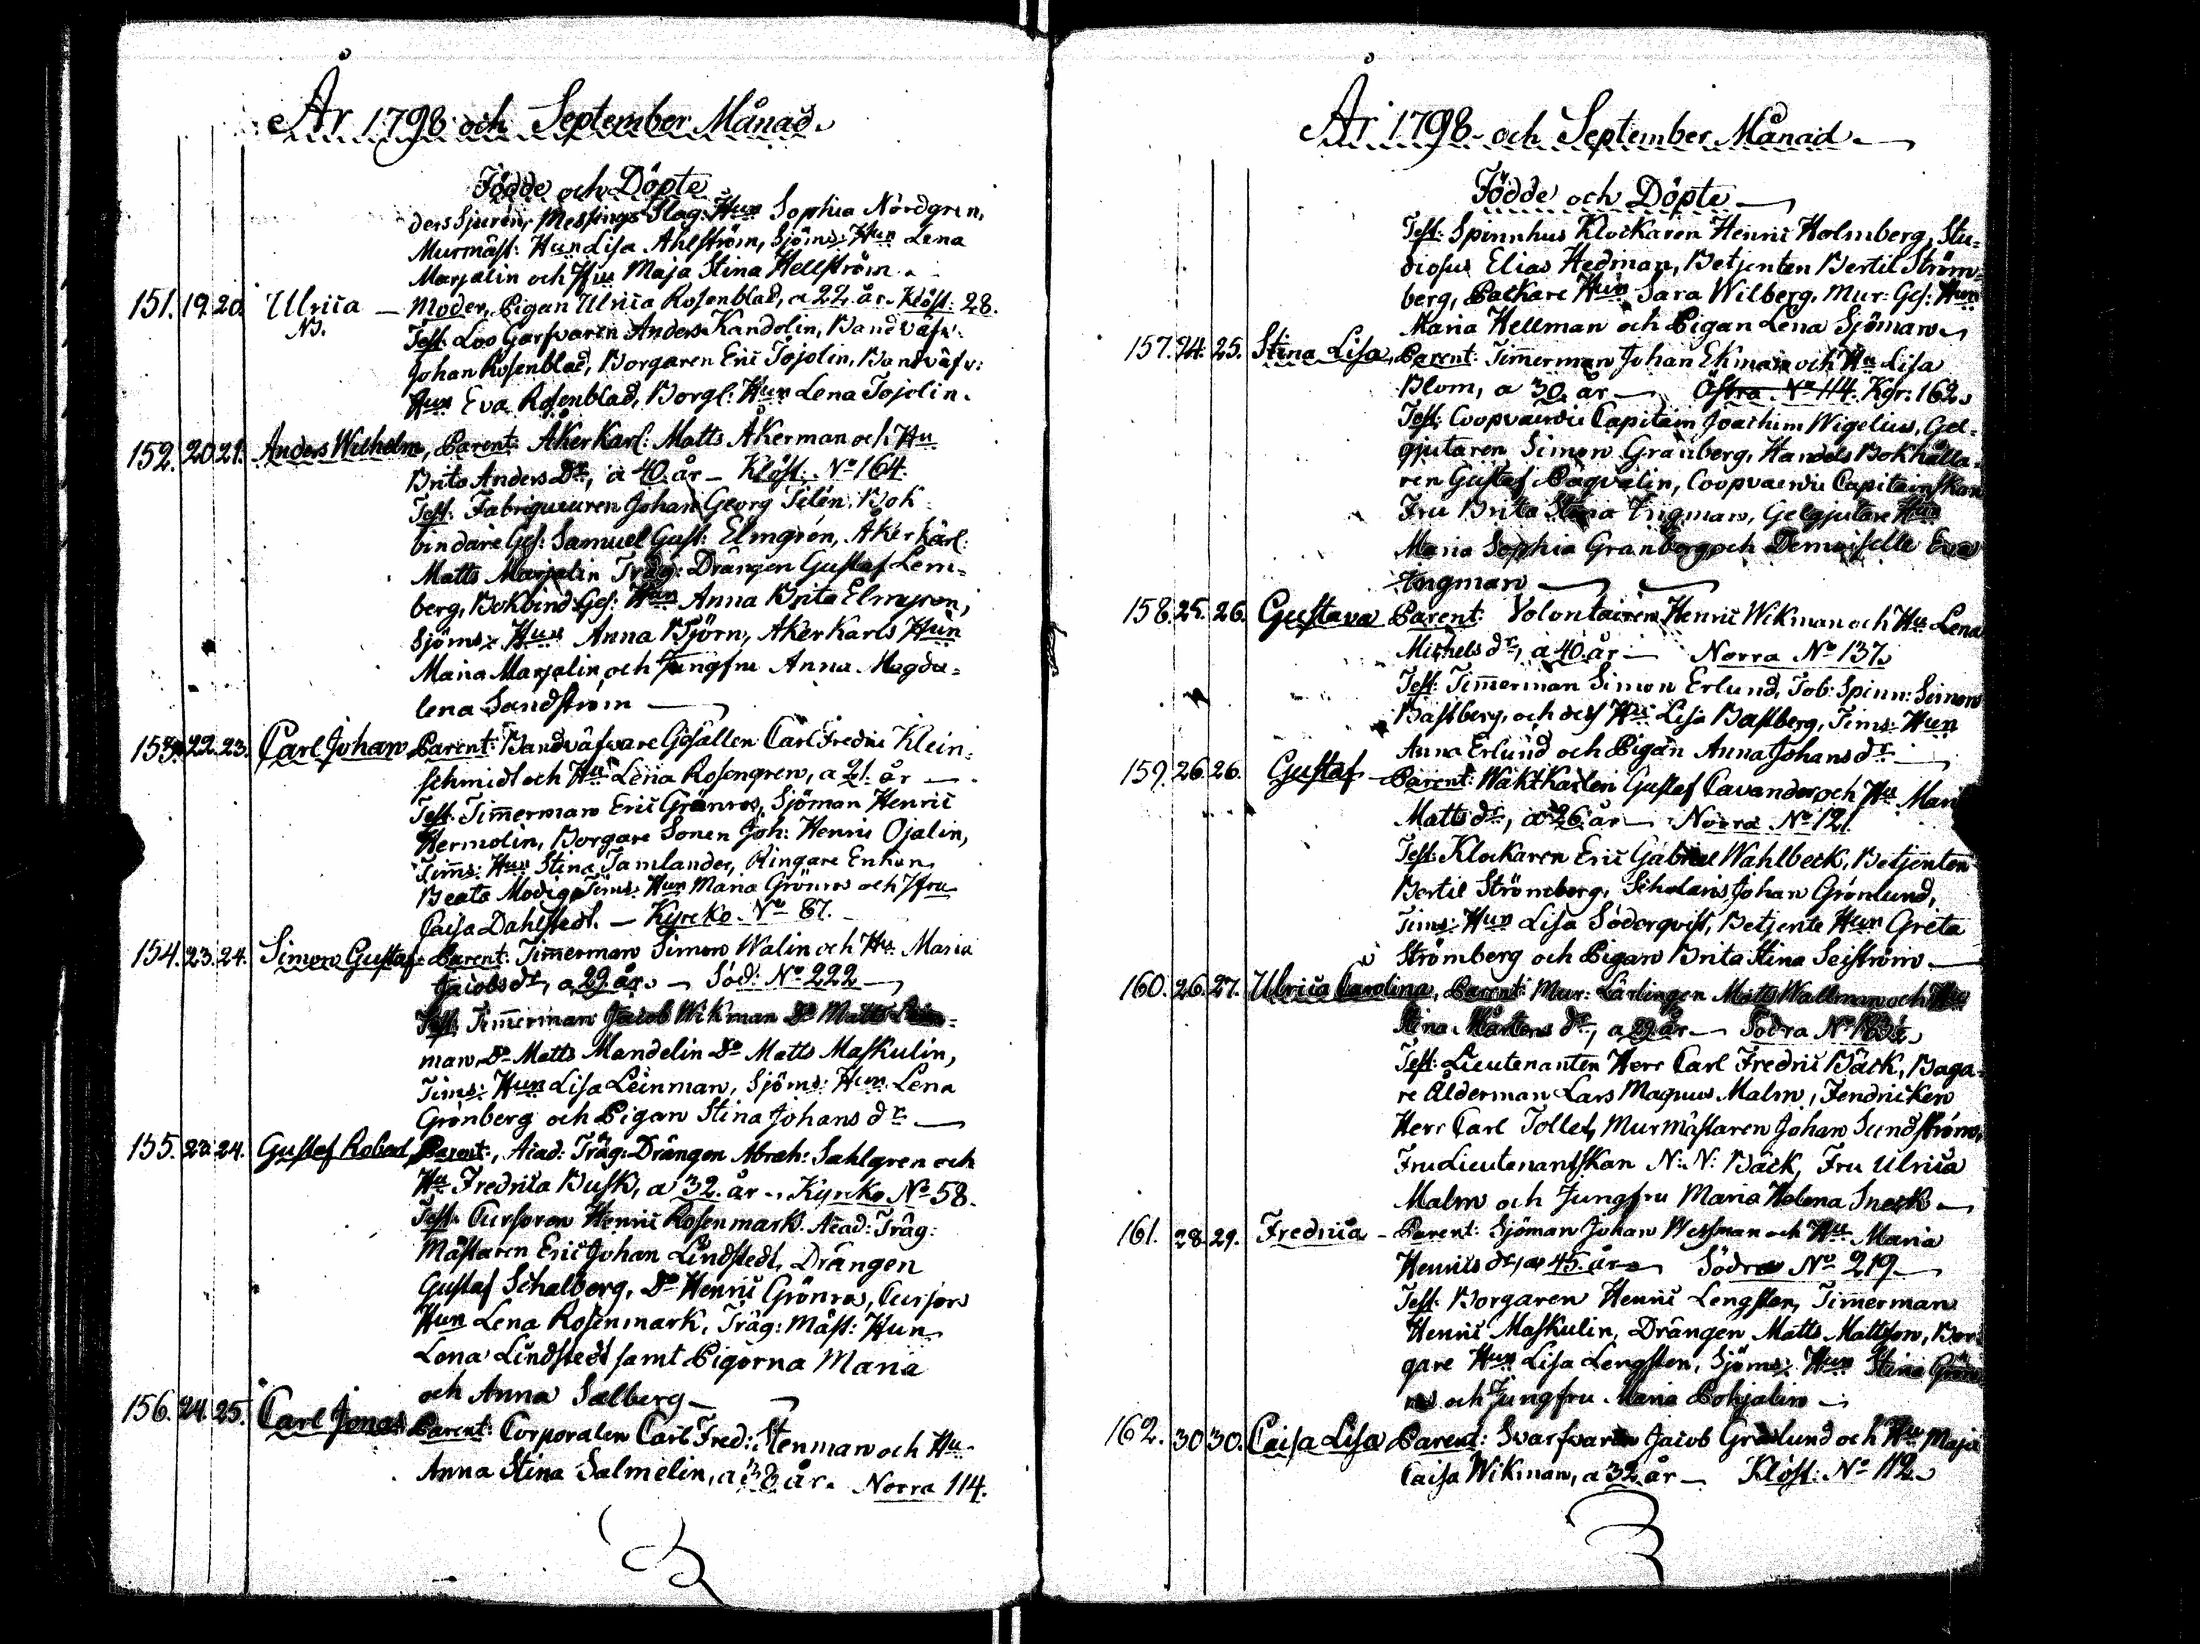 År 1798 och September Månad.
Födde och Döpte
ders Sjurén, Messings Slag: Hun Sophia Nordgren,
Murmäst: Hun Lisa Ahlström, Sjöms: Hun Lena
Marjalin och Jfru Maja Stina Hellström.
151. 19. 20. Ulrica — Moder, Pigan Ulrica Rosenblad, a 22 år. Klöst: 28.
NB. Test: Loo Garfvaren Anders Kandolin, Bandväfv:
Johan Rosenblad, Borgaren Eric Tojolin, Bandväfv:
Hun Eva Rosenblad, Borgl: Hun Lena Tojolin.
152. 20. 21. Anders Wilhelm, Parent: Åker Karl: Matts Åkerman och Hu
Brita Anders Dr, a 40 år — Klöst: No 164.
Test: Fabriqueuren Johan Georg Tilén. Bok-
bindare Ges: Samuel Gust: Elmgrén, Åker Karl:
Matts Marjalin Träg: Drängen Gustaf Lem-
berg, Bokbind Ges: Hun Anna Brita Elmgren,
Sjöms: Hun Anna Björn, Åker Karls Hun
Maria Marjalin och Jungfru Anna Magda-
lena Sandström —
153. 22. 23. Carl Johan Parent: Bandväfvare Gesällen Carl Fredric Klein-
schmidt och Hu Lena Rosengren, a 21 år —
Test: Timmerman Eric Grönros, Sjöman Henric
Hermolin, Borgare Sonen Joh: Henric Ojalin,
Tims: Hun Stina Tamlander, Ringare Enkan
Beata Modig, Tims: Hun Maria Grönros och Jfru
Caisa Dahlstedt. — Kyrcko No 87.
154. 23. 24. Simon Gustaf Parent: Timmerman Simon Walin och Hu Maria
Jacobs dr, a 29 år. — Söd: No 222 —
Test: Timmerman Jacob Wikman Do Matts
man, Do Matts Mandelin Do Matts Maskulin,
Tims: Hun Lisa Leinman, Sjöms: Hun Lena
Grönberg och Pigan Stina Johans dr —
155. 23. 24. Gustaf Robert, Parent: Acad: Träg: Drängen Abrah: Sahlgren och
Hu Fredrica Busk, a 32 år. Kyrcko No 58.
Test: Cursoren Henric Rosenmark. Acad: Träg:
Mästaren Eric Johan Lindstedt, Drängen
Gustaf Schalberg, Do Henric Grönros, Cursors
Hun Lena Rosenmark, Träg: Mäst: Hun
Lena Lindstedt samt Pigorna Maria
och Anna Salberg —
156. 24. 25. Carl Jonas Parent: Corporalen Carl Fred: Stenman och Hu
Anna Stina Salmelin, a 38 år. Norra 114.
År 1798 och September Månad —
Födde och Döpte —
Test: Spinnhus Klockaren Henric Holmberg, Stu-
diosus Elias Hedman, Betjenten Bertil Ström-
berg, Packare Hun Sara Wilberg, Mur: Ges: Hun
Maria Hellman och Pigan Lena Sjöman
157. 24. 25. Stina Lisa, Parent: Timmerman Johan Ekman och Hu Lisa
Blom, a 30 år — Östra No 114. Kgr: 162.
Test: Coopvaerdie Capitain Joachim Wigelius, Gel-
gjutaren Simon Granberg, Handels Bokhålla-
ren Gustaf Pagvalin, Coopvaerdie Capitainskan
Fru Brita Stina Ingman, Gelgjutare Hun
Maria Sophia Granberg och Demoiselle Eva
Ingman —
158. 25. 26. Gustava Parent: Volontairen Henric Wikman och Hu Lena
Michels dr, a 40 år — Norra No 137.
Test: Timmerman Simon Erlund, Tob: Spinn: Simon
Bastberg, och dess Hu Lisa Bastberg, Tims: Hun
Anna Erlund och Pigan Anna Johans dr —
159. 26. 26. Gustaf — Parent: Wakt Karlen Gustaf Cavander och Hu Mari
Matts dr, a 26 år — Norra No 121
Test: Klockaren Eric Gabriel Wahlbeck, Betjenten
Bertil Strömberg, Scholaris Johan Grönlund,
Tims: Hun Lisa Söderqvist, Betjente Hun Greta
Strömberg och Pigan Brita Stina Seiström —
160. 26. 27. Ulrica Carolina, Parent: Mur: Lärlingen Matts Wallman och Hu
Stina Mårtens dr, a 29 år — Södra No
Test: Lieutenanten Herr Carl Fredric Bäck, Baga-
re Ålderman Lars Magnus Malm, Fendricken
Herr Carl Tollet, Murmästaren Johan Sundström,
Fru Lieutenantskan N: N: Bäck, Fru Ulrica
Malm och Jungfru Maria Helena Sneck —
161. 28. 29. Fredrica — Parent: Sjöman Johan Wessman och Hu Maria
Henrics dr, a 45 år — Södra No 219 —
Test: Borgaren Henric Lengsten, Timmerman
Henric Maskulin, Drängen Matts Mattson, Bor-
gare Hun Lisa Lengsten, Sjöms: Hun Stina Grön
ros och Jungfru Maria Pohjalin —
162. 30. 30. Caisa Lisa Parent: Svarfvaren Jacob Grönlund och Hu Maja
Caisa Wikman, a 32 år — Klöst: No 112